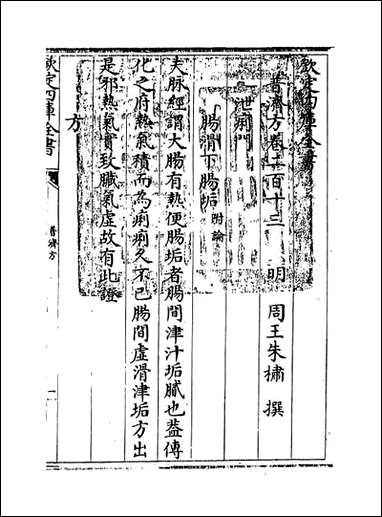 欽定四庫全書
普濟方卷二百十三　明　周王朱橚　撰
泄痢門
腸滑下腸垢　附論
夫脉經謂大腸有熱便腸垢者腸間津汁垢膩也葢傳
化之府熱氣積而為痢痢久不已腸間虚滑津垢方出
是邪熱氣實致臟氣虚故有此證
方
欽定四庫全書
普濟方
一